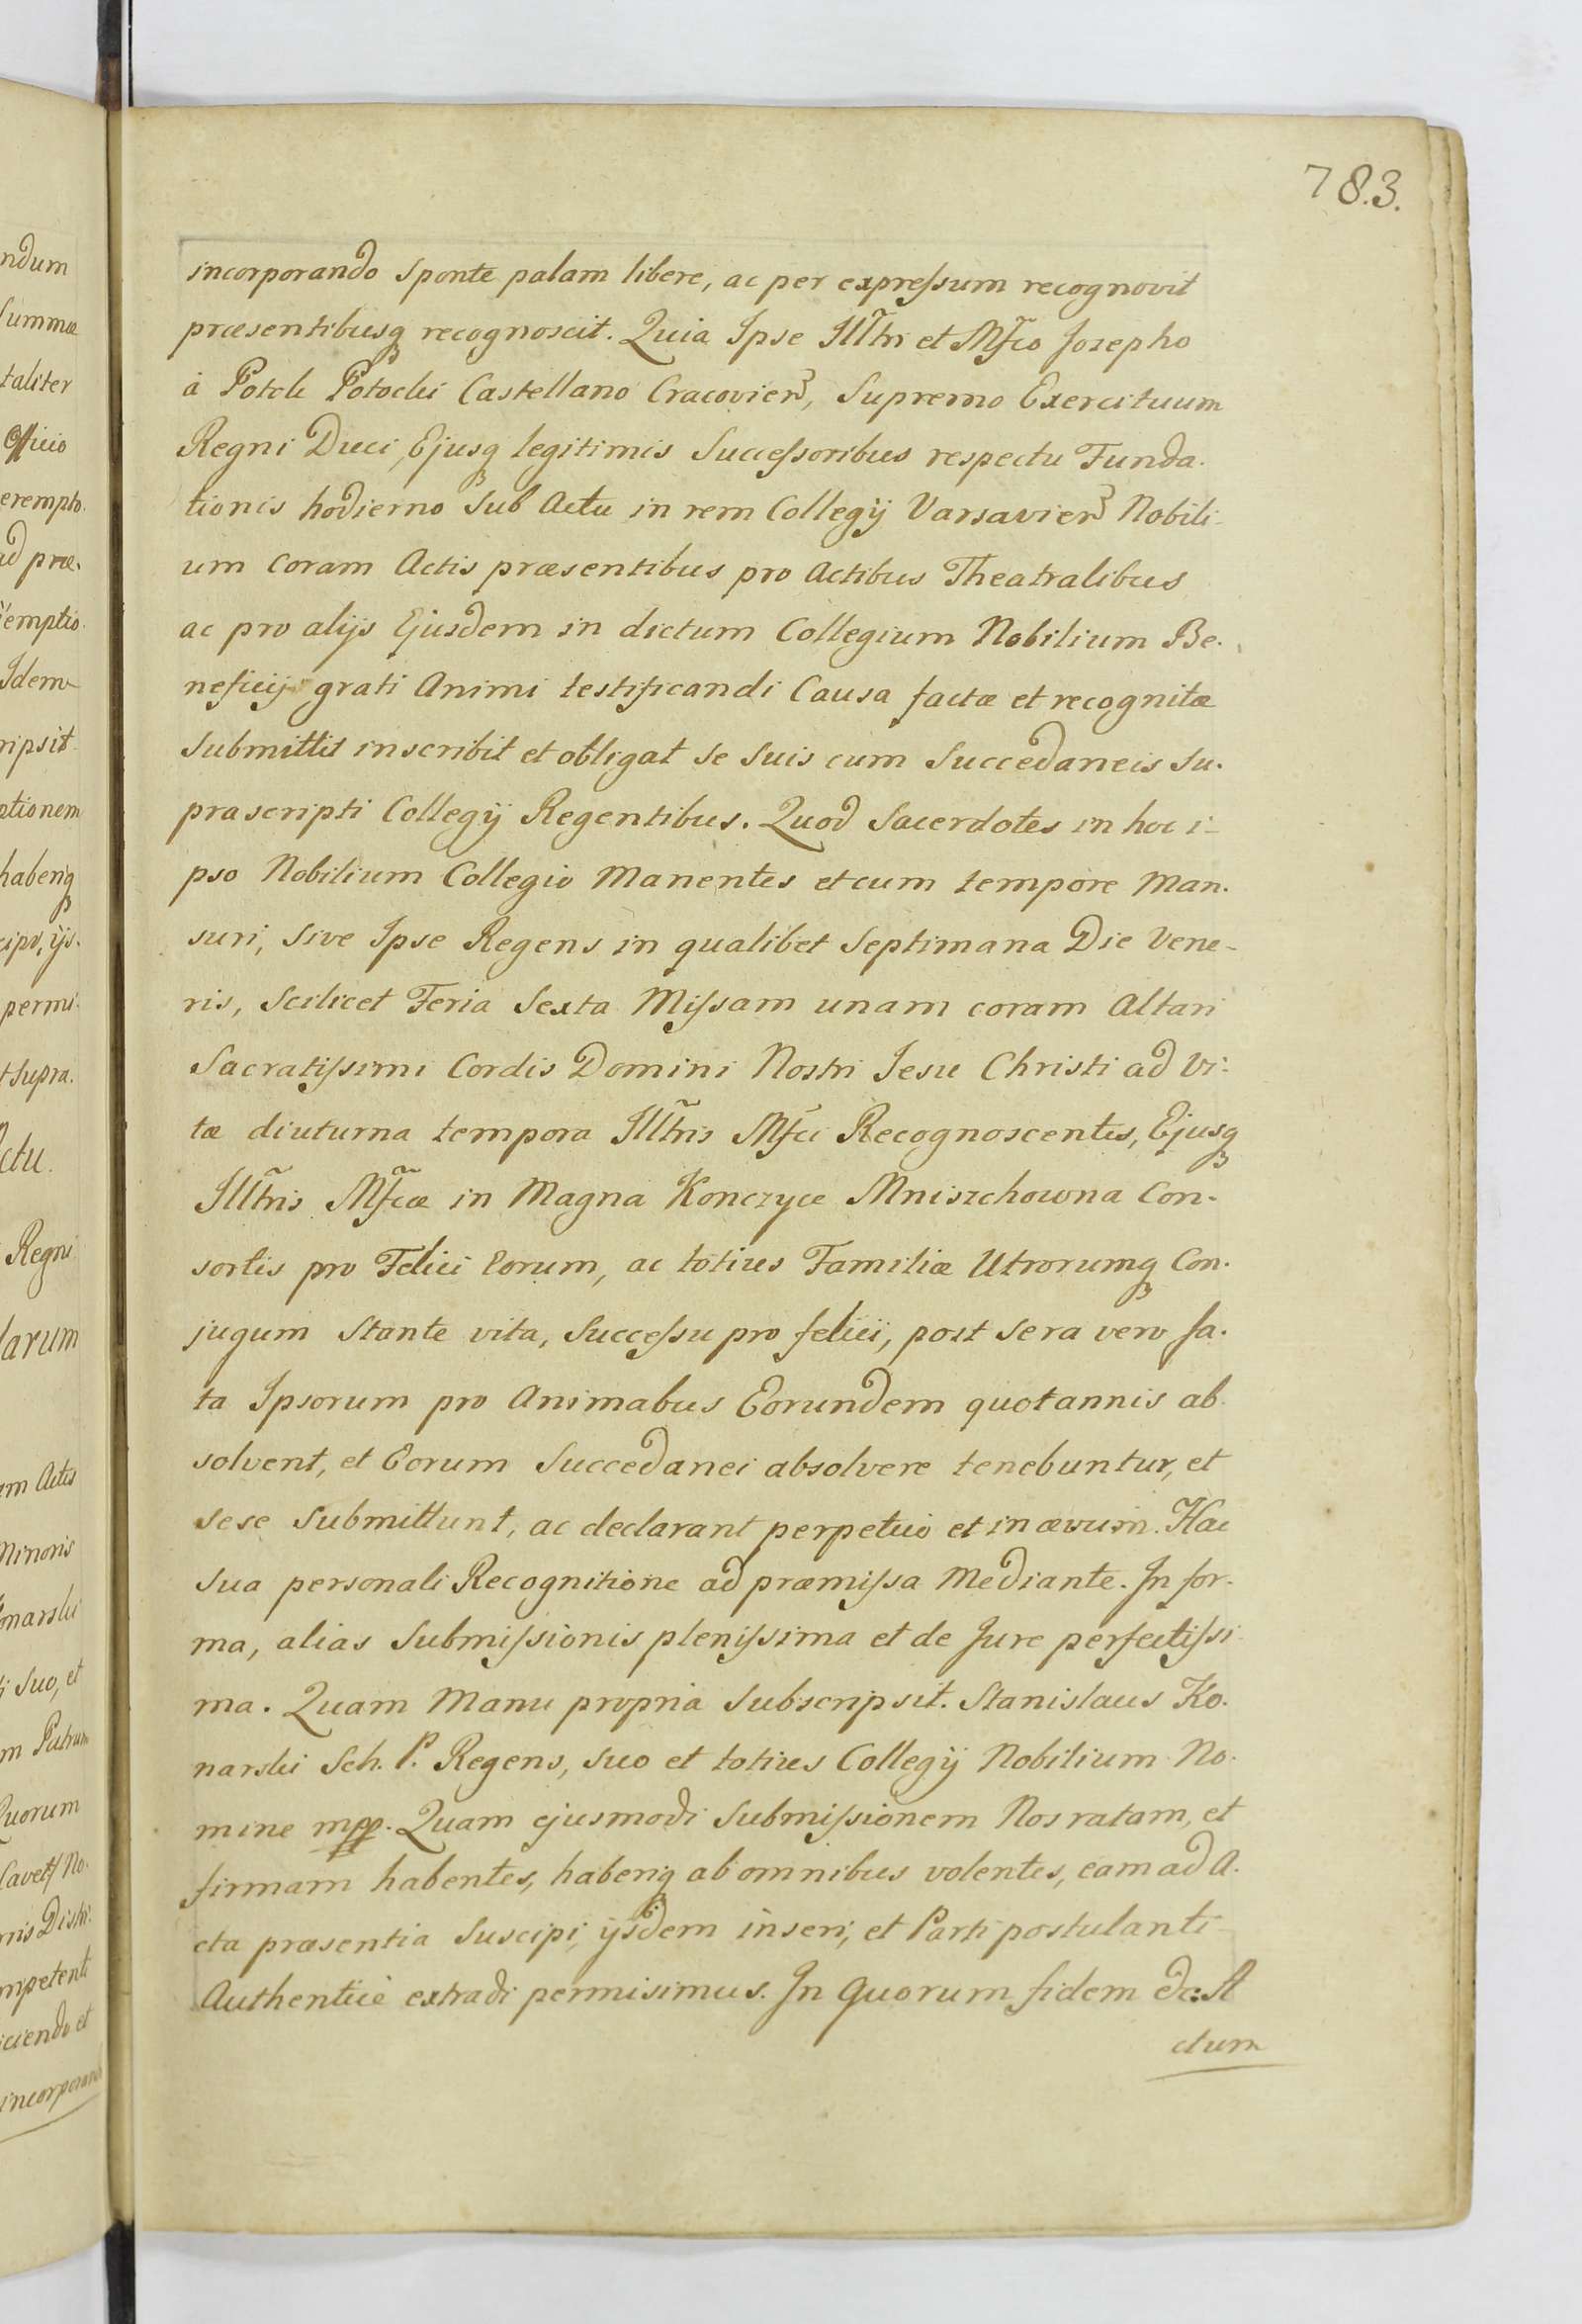 783.
incorporando sponte palam libere, ac per expreſsum recognovit
præsentibusq̃ recognoscit. Quia Ipse Illt̃ri et Mf̃co Josepho
à Potok Potocki Castellano Cracovien̄, Supremo Exercituum
Regni Duci, Ejusq̃ legitimis Succeſsoribus respectu Funda-
tionis hodierno sub Actu in rem Collegij Varsavien̄ Nobili-
um coram Actis præsentibus pro Actibus Theatralibus
ac pro alijs Ejusdem in dictum Collegium Nobilium Be-
neficijs grati Animi testificandi Causa factæ et recognitæ
submittit inscribit et obligat se suis cum Succedaneis su-
prascripti Collegij Regentibus. Quod Sacerdotes in hoc i-
pso Nobilium Collegio Manentes et cum tempore Man-
suri, sive Ipse Regens in qualibet Septimana Die Vene-
ris, scilicet Feria Sexta Miſsam unam coram Altari
Sacratiſsimi Cordis Domini Nostri Jesu Christi ad Vi-
tæ diuturna tempora Illt̃ris Mf̃ci Recognoscentis, Ejusq̃
Illt̃ris Mf̃cæ in Magna Konczyce Mniszchowna Con-
sortis pro Felici Eorum, ac totius Familiæ Utrorumq̃ Con-
jugum stante vita, Succeſsu pro felici, post sera vero fa-
ta Ipsorum pro Animabus Eorundem quotannis ab-
solvent, et Eorum Succedanei absolvere tenebuntur, et
sese submittunt, ac declarant perpetuò et in ævum. Hac
sua personali Recognitione ad præmiſsa Mediante. In for-
ma, alias Submiſsionis pleniſsima et de Jure perfectiſsi-
ma. Quam Manu propria subscripsit. Stanislaus Ko-
narski Sch. P. Regens, suo et totius Collegij Nobilium No-
mine mpp. Quam ejusmodi Submiſsionem Nos ratam, et
firmam habentes, haberiq̃ ab omnibus volentes, eam ad A-
cta præsentia suscipi, ijsdem inseri, et Parti postulanti
Authenticè extradi permisimus. In quorum fidem &c: A
ctum
ndum
summæ
taliter
Officio
erempto-
ad præ-
emptio-
Idem
ripsit
ptionem
haberiq̃
cipi, ijs-
permi-
t supra.
Actu
Regni
larum
um Actis
Minoris
Konarski
suo, et
m Patrum
Quorum
No-
Distri-
mpetenti
iciendo et
incorporando